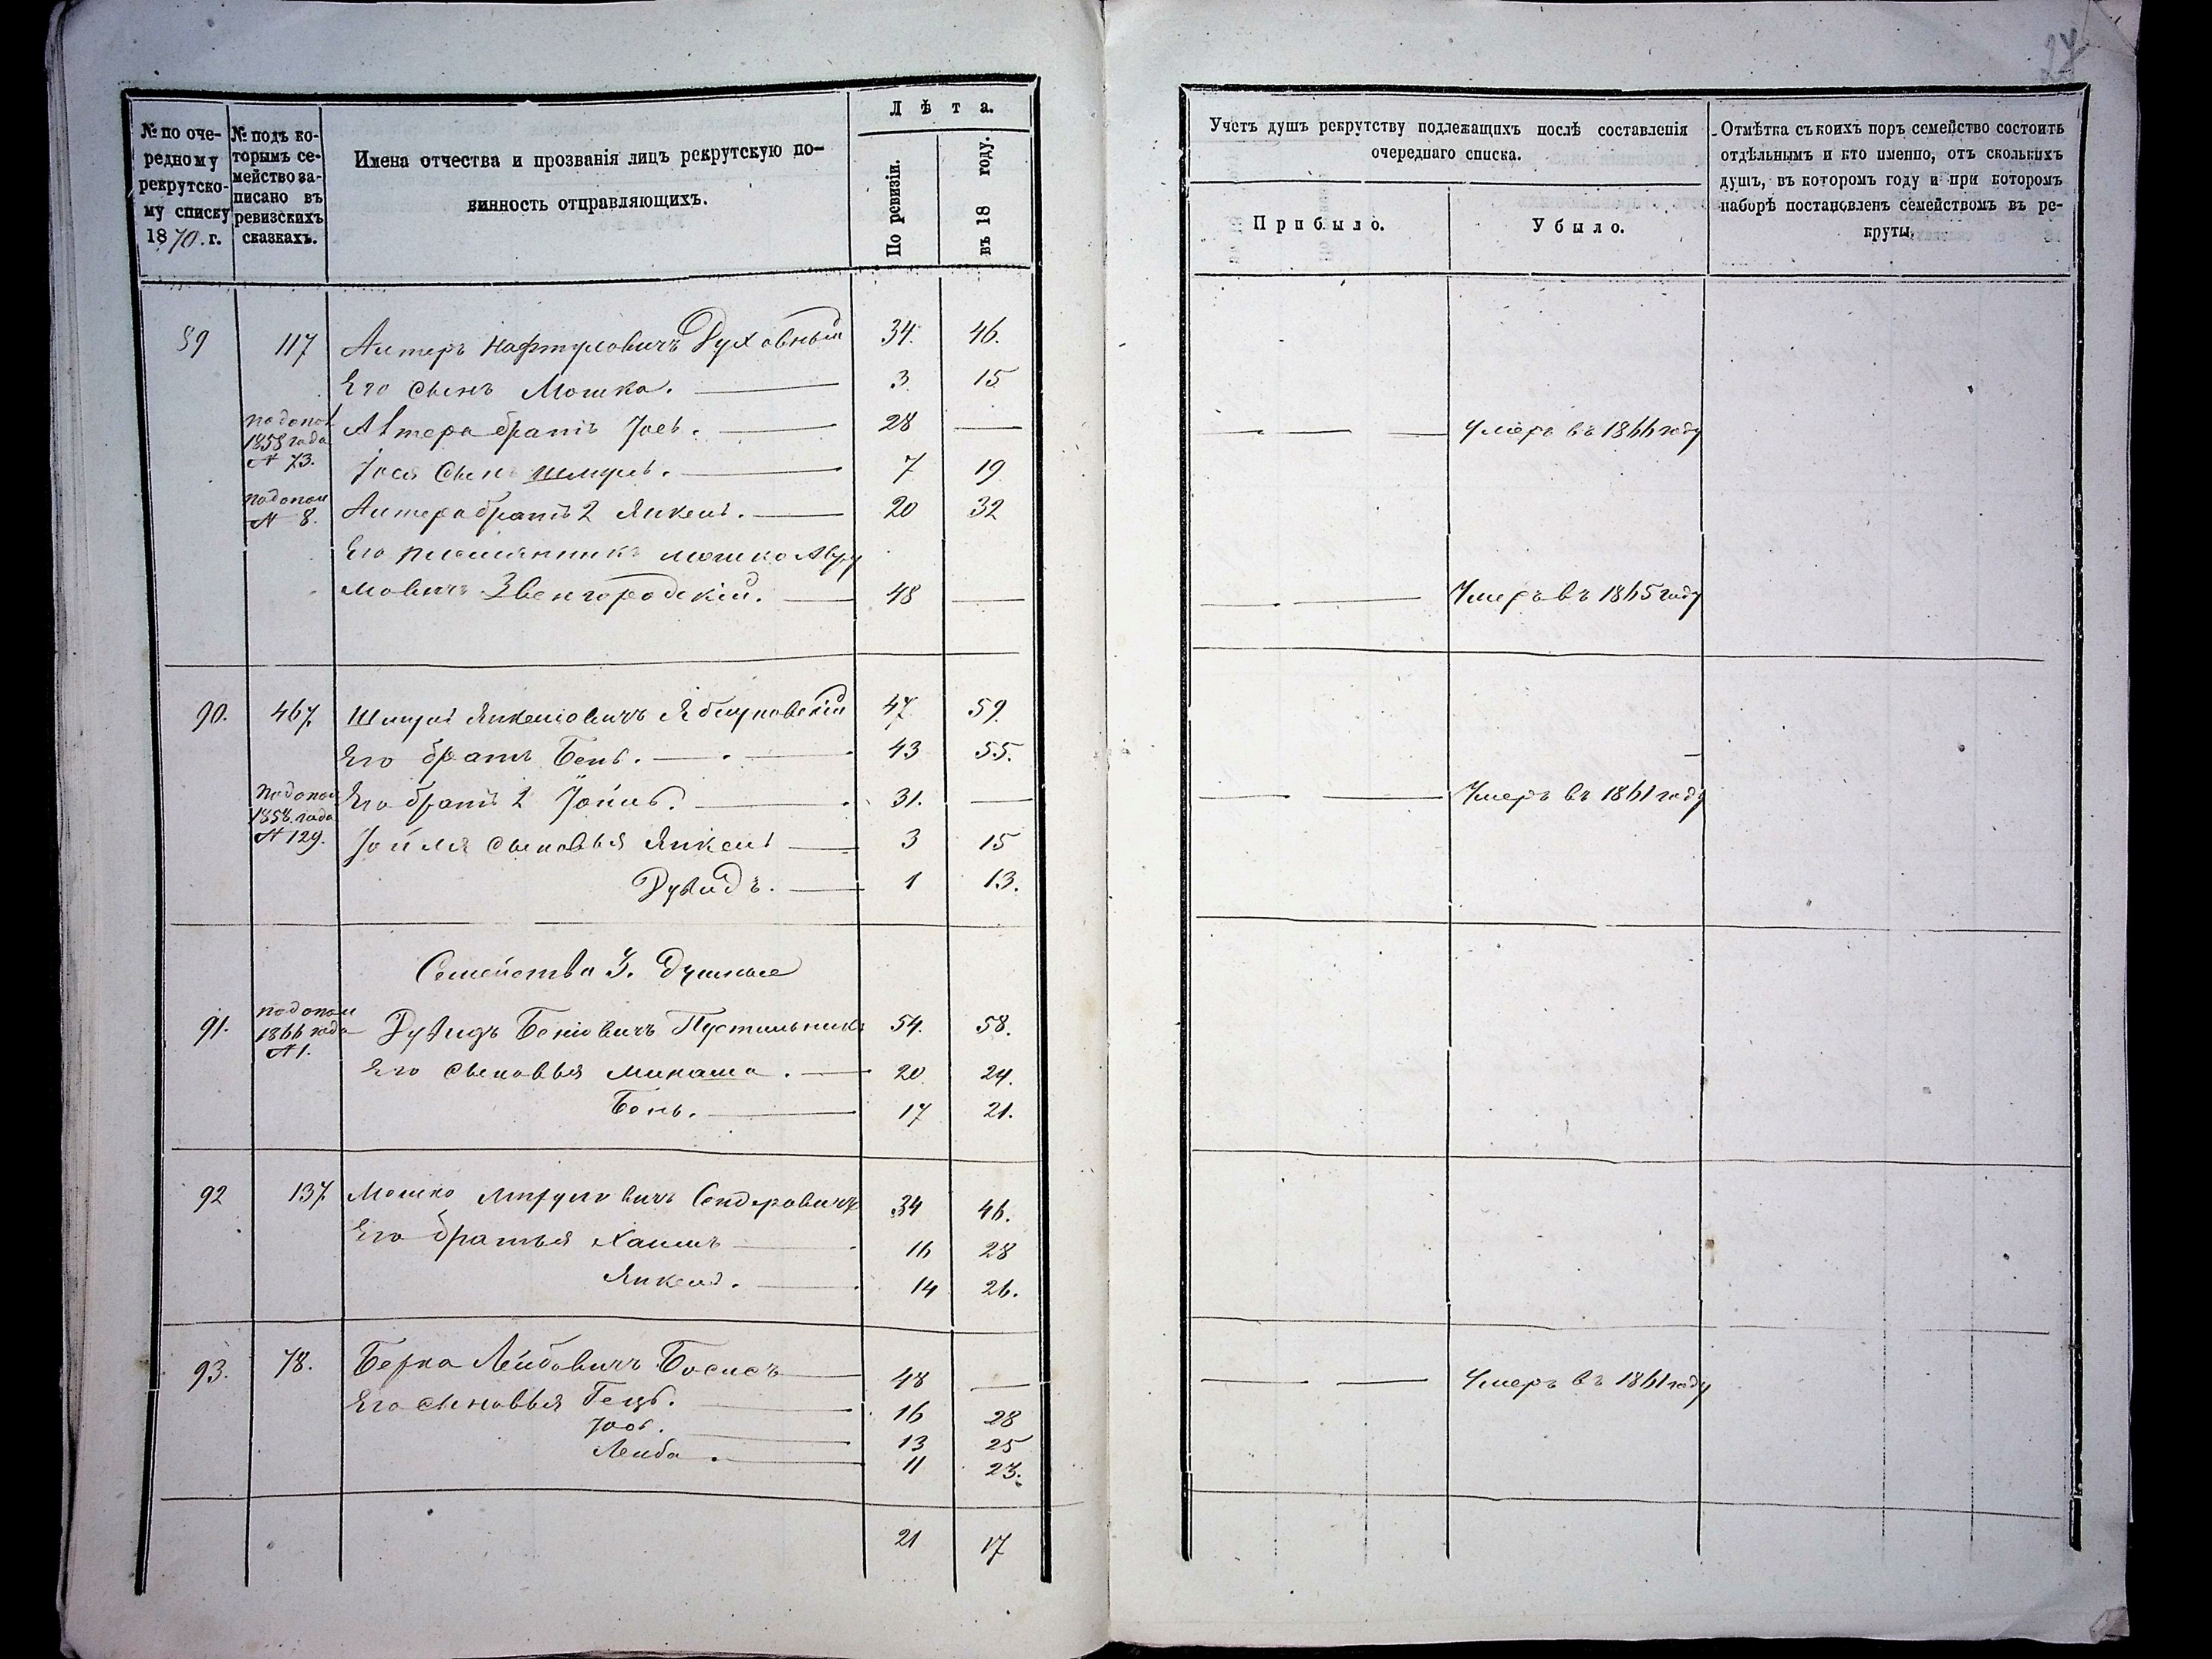 27
№ по оче-
редному
рекрутско-
му списку
1870. г.
№ подъ ко-
торымъ се-
мейство за-
писано въ
ревизскихъ
сказкахъ.
Имена отчества и прозванія лицъ рекрутскую по-
винность отправляющихъ.
Лѣта.
По ревизіи.
въ 18 году.
Учетъ душъ рекрутству подлежащихъ послѣ составленія
очереднаго списка.
Прибыло.
Убыло.
Отмѣтка съ коихъ поръ семейство состоитъ
отдѣльнымъ и кто именно, отъ сколькихъ
душъ, въ которомъ году и при которомъ
наборѣ постановленъ семействомъ въ ре-
круты.
89 117 Алтеръ Нафтуловичъ Духовный 34. 46.
Его сынъ Мошка. 3 15
по допол 1858 года № 73. Алтера братъ Іось. 28 — Умеръ въ 1866 году
Іося сынъ Шмуль. 7 19
по допол № 8. Алтера братъ 2 Янкель. 20 32
Его племянникъ Мошко Авру
мовичъ Звенгородскій. 48 — Умеръ въ 1865 году
90. 467. Шмуль Янкелевичъ Яблуновскій 47 59.
Его братъ Бень. 43 55.
по допол 1858 года № 129. Его братъ 2 Іойль. 31. — Умеръ въ 1861 году
Іойля сыновья Янкель 3 15
Дувидъ. 1 13.
Семейства 3. душные
91. по допол 1866 года № 1. Дувидъ Беніовичъ Пустильникъ 54. 58.
Его сыновья Минаша. 20. 24.
Бень. 17 21.
92 137. Мошко Сендеровичъ 34 46.
Его братья Хаимъ 16 28
Янкель. 14 26.
93. 78. Берка Лейбовичъ 48 — Умеръ въ 1861 году
Его сыновья Гецъ. 16 28
Іось. 13 25
Лейба. 11 23.
21 17